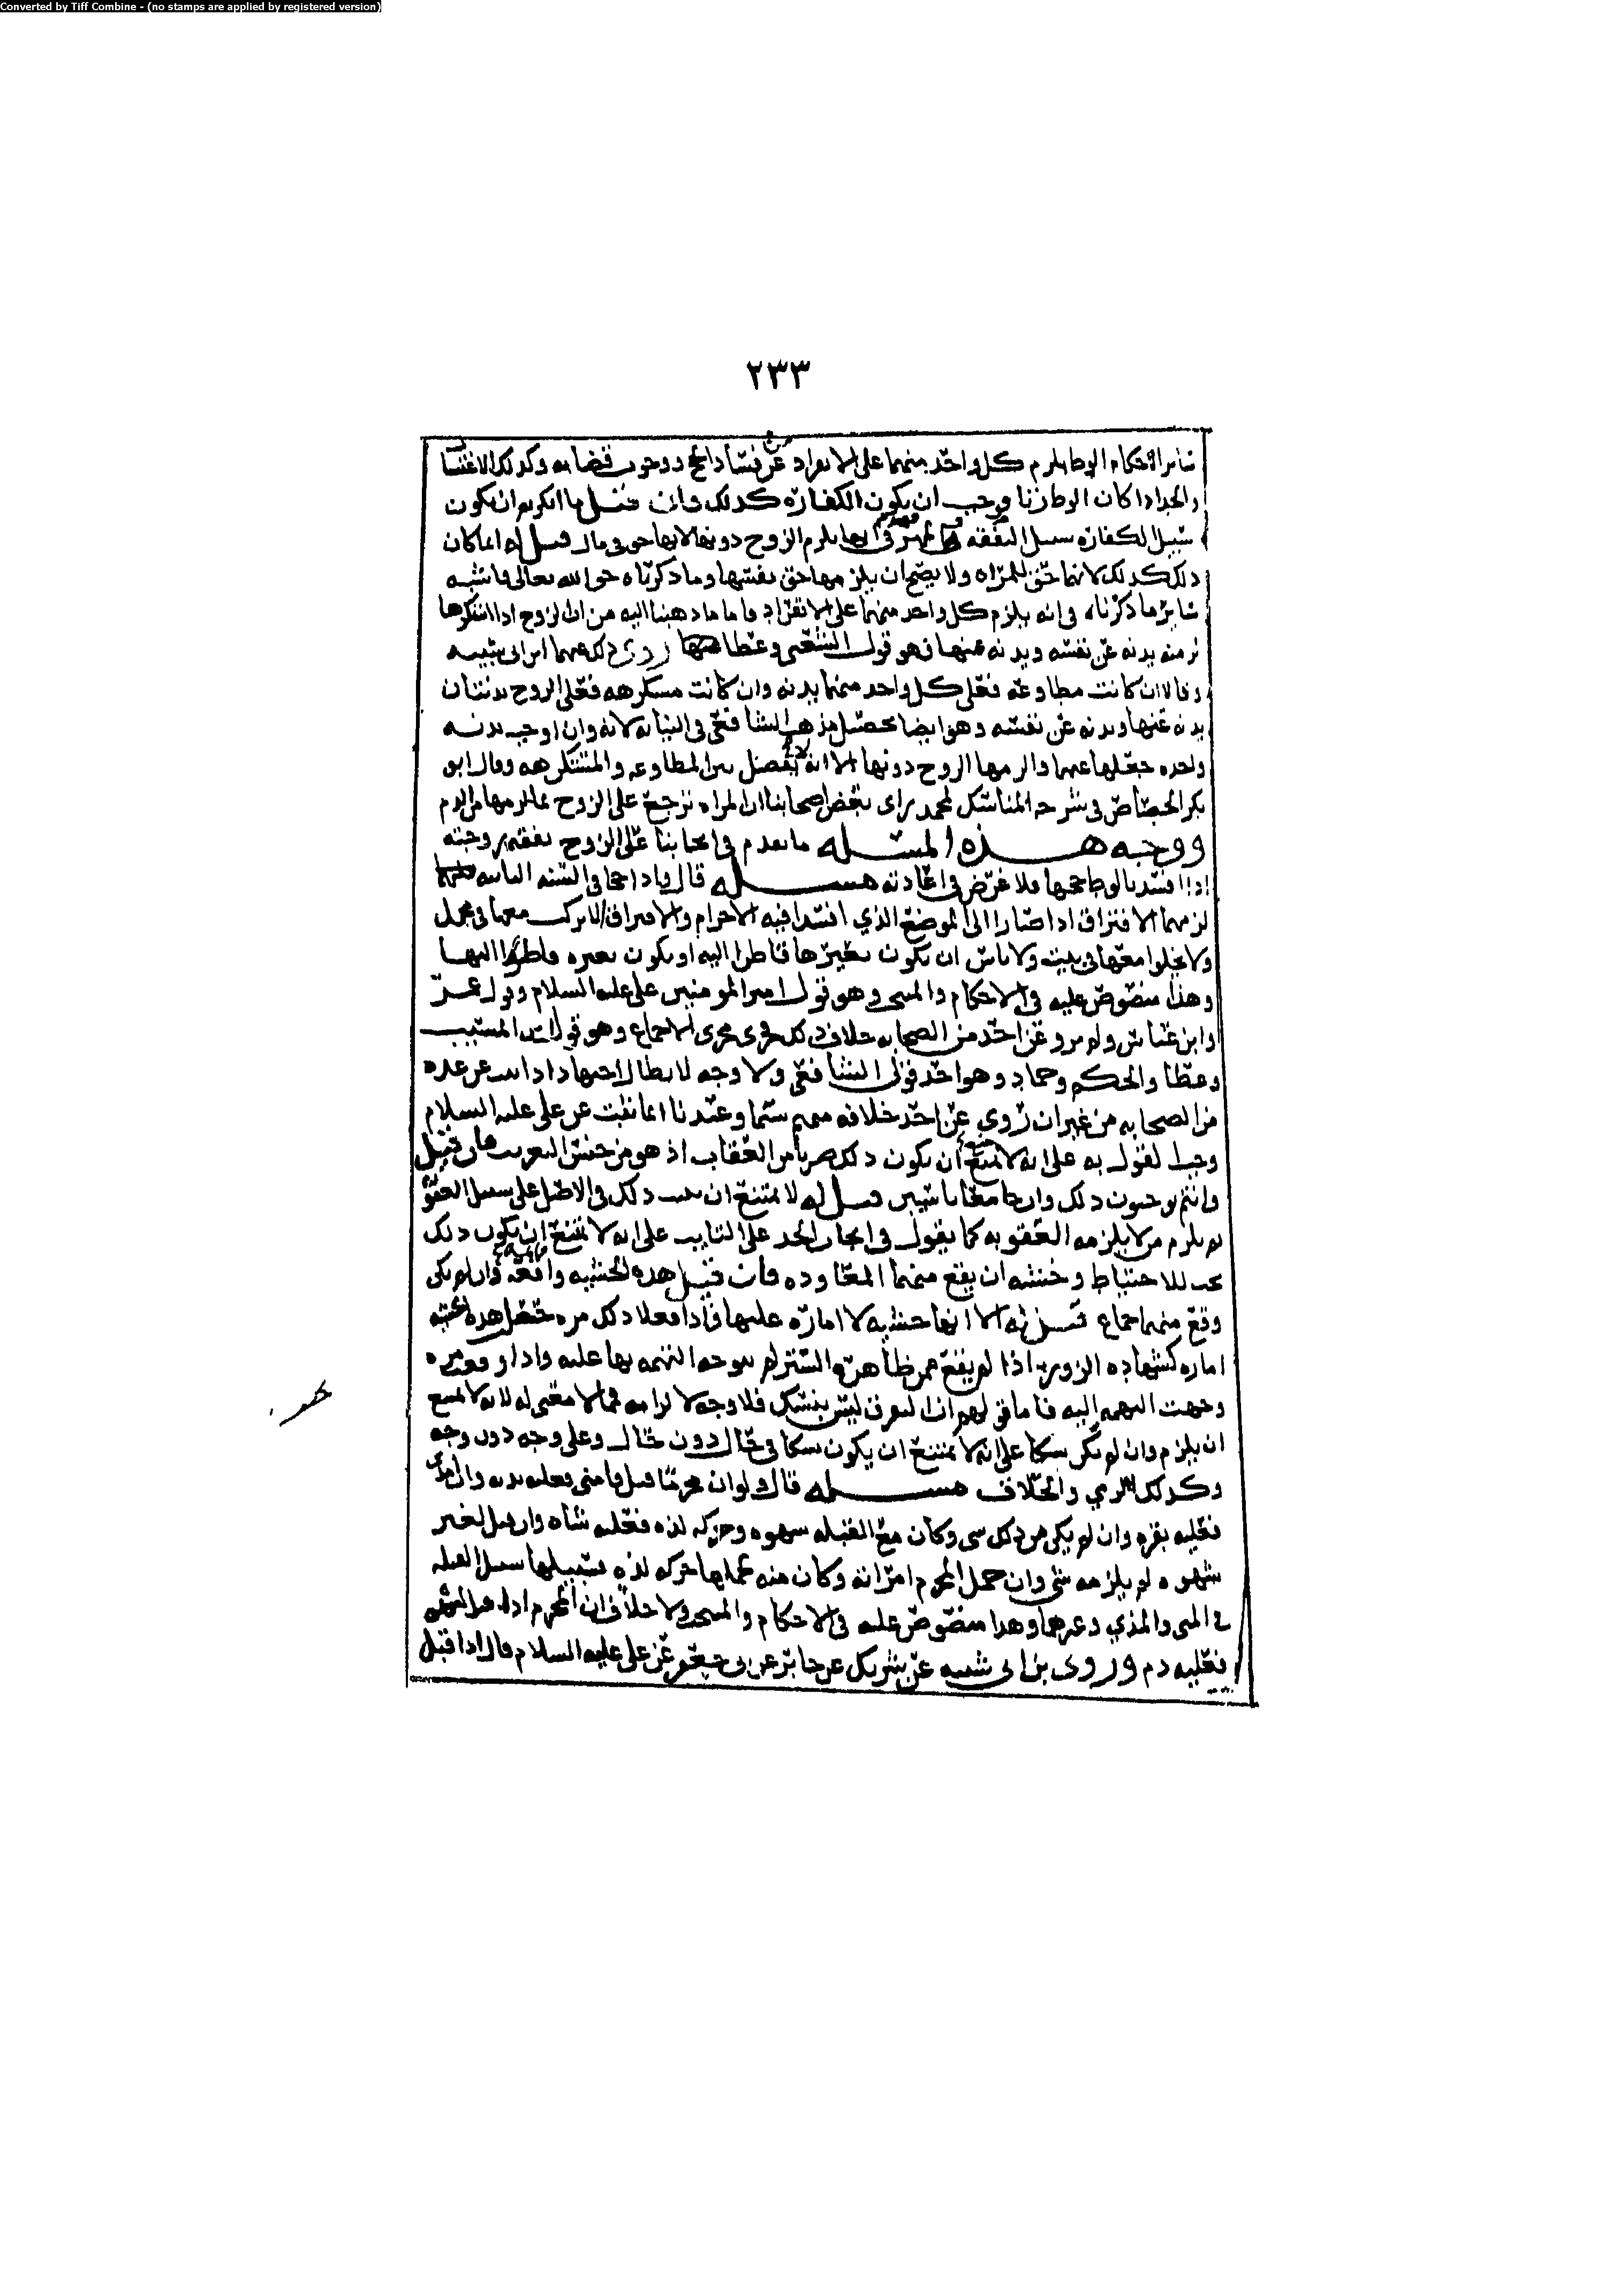 Converted by Tiff Combine - (no stamps are applied by registered version)
٢٣٣
ساير الاحكام الوطي يلزم كل واحد منهما على الانفراد من فساد الحج ووجوب قضايه وكذلك الاغتسال
والحد اذا كان الوطا زنا وجب ان يكون الكفارة كذلك فان قيل ما انكرتم ان يكون
سبيل الكفارة سبيل النفقة والمهر في انها يلزم الزوج دونها لانها حق في مال قيل له انما كان
ذلك كذلك لانهما حق للمراه ولا يصح ان يلزمها حق نفسها وما ذكرناه حق الله تعالى فاشبه
ساير ما ذكرناه في انه يلزم كل واحد منهما على الانفراد فاما ما ذهبنا اليه من ان الزوج اذا استكرهها
لزمته بدنه عن نفسه وبدنه عنها فهو قول الشعبي وعطا روى ذلك عنهما ابن ابي شيبه
وقالا ان كانت مطاوعه فعلى كل واحد منهما بدنه وان كانت مستكرهه فعلى الزوج بدنتان
بدنه عنها وبدنه عن نفسه وهو ايضا محصل مذهب الشافعي في النيابه لانه وان اوجب بدنه
واحده جعلها عنهما والزمها الزوج دونها الا انه لا يفصل بين المطاوعه والمستكرهه وقال ابو
بكر الجصاص في شرحه المناسك لمحمد راى بعض اصحابنا ان المراه ترجع على الزوج بما لزمها من الدم
ووجه هذه المسئله ما تقدم في ايجابنا على الزوج نفقه زوجته
اذا افسد بالوطا حجها فلا غرض في اعادته مسئله قال فاذا حجا في السنه الثانيه
لزمهما الافتراق اذا صارا الى الموضع الذي افسدا فيه الاحرام والافتراق ان لا يركب معها في محمل
ولا يخلوا معها في بيت ولا باس ان يكون بعيرها قاطرا اليه او يكون بعيره قاطرا اليها
وهذا منصوص عليه في الاحكام والمنتخب وهو قول امير المومنين على عليه السلام وقول عمر
وابن عباس ولم يرو عن احد من الصحابه خلاف ذلك فجرى مجرى الاجماع وهو قول ابن المسيب
وعطا والحكم وحماد وهو احد قولي الشافعي ولا وجه لابطال اجتهاد اذا ثبت عن عده
من الصحابه من غير ان روي عن احد خلافه منهم سيما وعندنا انما ثبت عن علي عليه السلام
وجب القول به على انه لا يمتنع ان يكون ذلك ضربا من العقاب اذ هو من جنس التغريب فان قيل
وانتم توجبون ذلك وان جا معا تايبين قيل له لا يمتنع ان يثبت ذلك في الاصل على سبيل العقوبه
ثم يلزم من لا يلزمه العقوبه كما يقول في ايجاب الحد على التايب على انه لا يمتنع ان يكون ذلك
يجب للاحتياط وخشيه ان يقع منهما المعاوده فان قيل هذه الخشيه واقعه وان لم يكن
وقع منهما جماع قيل له الا انها خشيه لا اماره عليها فاذا فعلا ذلك مره حصل لهذه الخشيه
اماره كشهاده الزور اذا لم يقع ممن ظاهره الستر لم يتوجه التهمه بها عليه واذا وقعت مره
وجهت التهمه اليه فاما قولهم ان التفرق ليس بنسك فلا وجه لالزامه فما لا معنى له لانه لا يمتنع
ان يلزم وان لم يكن نسكا على انه لا يمتنع ان يكون نسكا في حال دون حال وعلى وجه دون وجه
وكذلك الرمي والحلاق مسئله قال ولو ان محرما قبل فامنى فعليه بدنه وان امذى
فعليه بقره وان لم يكن من ذلك شي وكان مع القبله شهوه وحركه لذه فعليه شاه وان قبل لغير
شهوه لم يلزمه شي وان حمل المحرم امراته وكان منه بحملها حركه لذه سبيلها سبيل القبله
في المنى والمذي وغيرهما وهذا منصوص عليه في الاحكام والمنتخب ولا خلاف ان المحرم اذا قبل لشهوه
فعليه دم وروى بن ابي شيبه عن شريك عن جابر عن ابي جعفر عن على عليه السلام قال اذا قبل